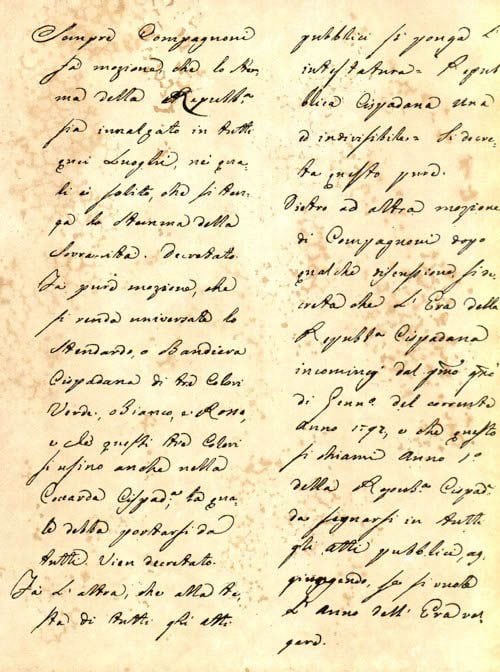 Sempre Compagnoni
fa mozione, che lo Stem-
ma della Repubb.ª
sia innalzato in tutti
quei Luoghi, nei qua-
li è solito, che si ten-
ga lo Stemma della
Sovranità. Decretato.
Fà pure mozione, che
si renda universale lo
Stendardo, o Bandiera
Cispadana di tre Colori
Verde, Bianco, e Rosso,
e che questi tre Colori
si usino anche nella
Coccarda Cispad.ª la qua-
le debba portarsi da
tutti. Vien decretato.
Fà l'altra, che alla te-
sta di tutti gli atti
pubblici si ponga l'
intestatura = Repub
blica Cispadana una
ed indivisibile = Si decre-
ta questo pure.
Dietro ad altra mozione
di Compagnoni dopo
qualche discussione, si de-
creta che l'Era della
Repubb.ª Cispadana
incominci dal primo
di Genn.º del corrente
Anno 1797, e che questo
si chiami Anno 1º
della Repub.ª Cispad.ª
da segnarsi in tutti
gli atti pubblici, ag-
giungendo, se si vuole
l'anno dell'Era vol-
gare.